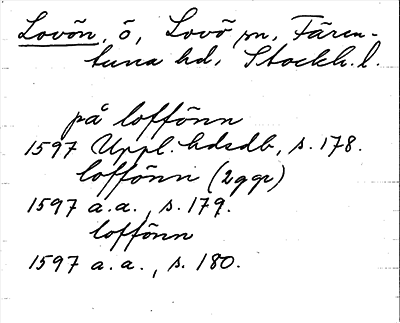 Lovön, ö, Lovö sn, Fären-
tuna hd, Stockh. l.
på loffönn
1597 Uppl. hdsdb, s. 178.
loffönn (2ggr)
1597 a.a., s. 179.
loffönn
1597 a.a., s. 180.